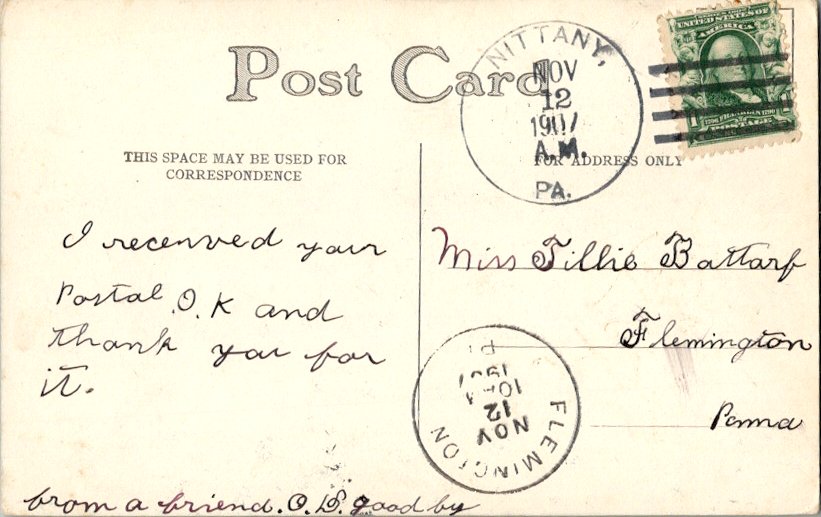 Post Card
NITTANY,
NOV
12
1907
A.M.
PA.
UNITED STATES OF
AMERICA
1706 FRANKLIN 1790
POSTAGE
THIS SPACE MAY BE USED FOR
CORRESPONDENCE
FOR ADDRESS ONLY
I received your
Postal O.K and
thank you for
it.
from a friend. O.S. good by
Miss Tillie Battarf
Flemington
Penna
FLEMINGTON
NOV
12
10 AM
1907